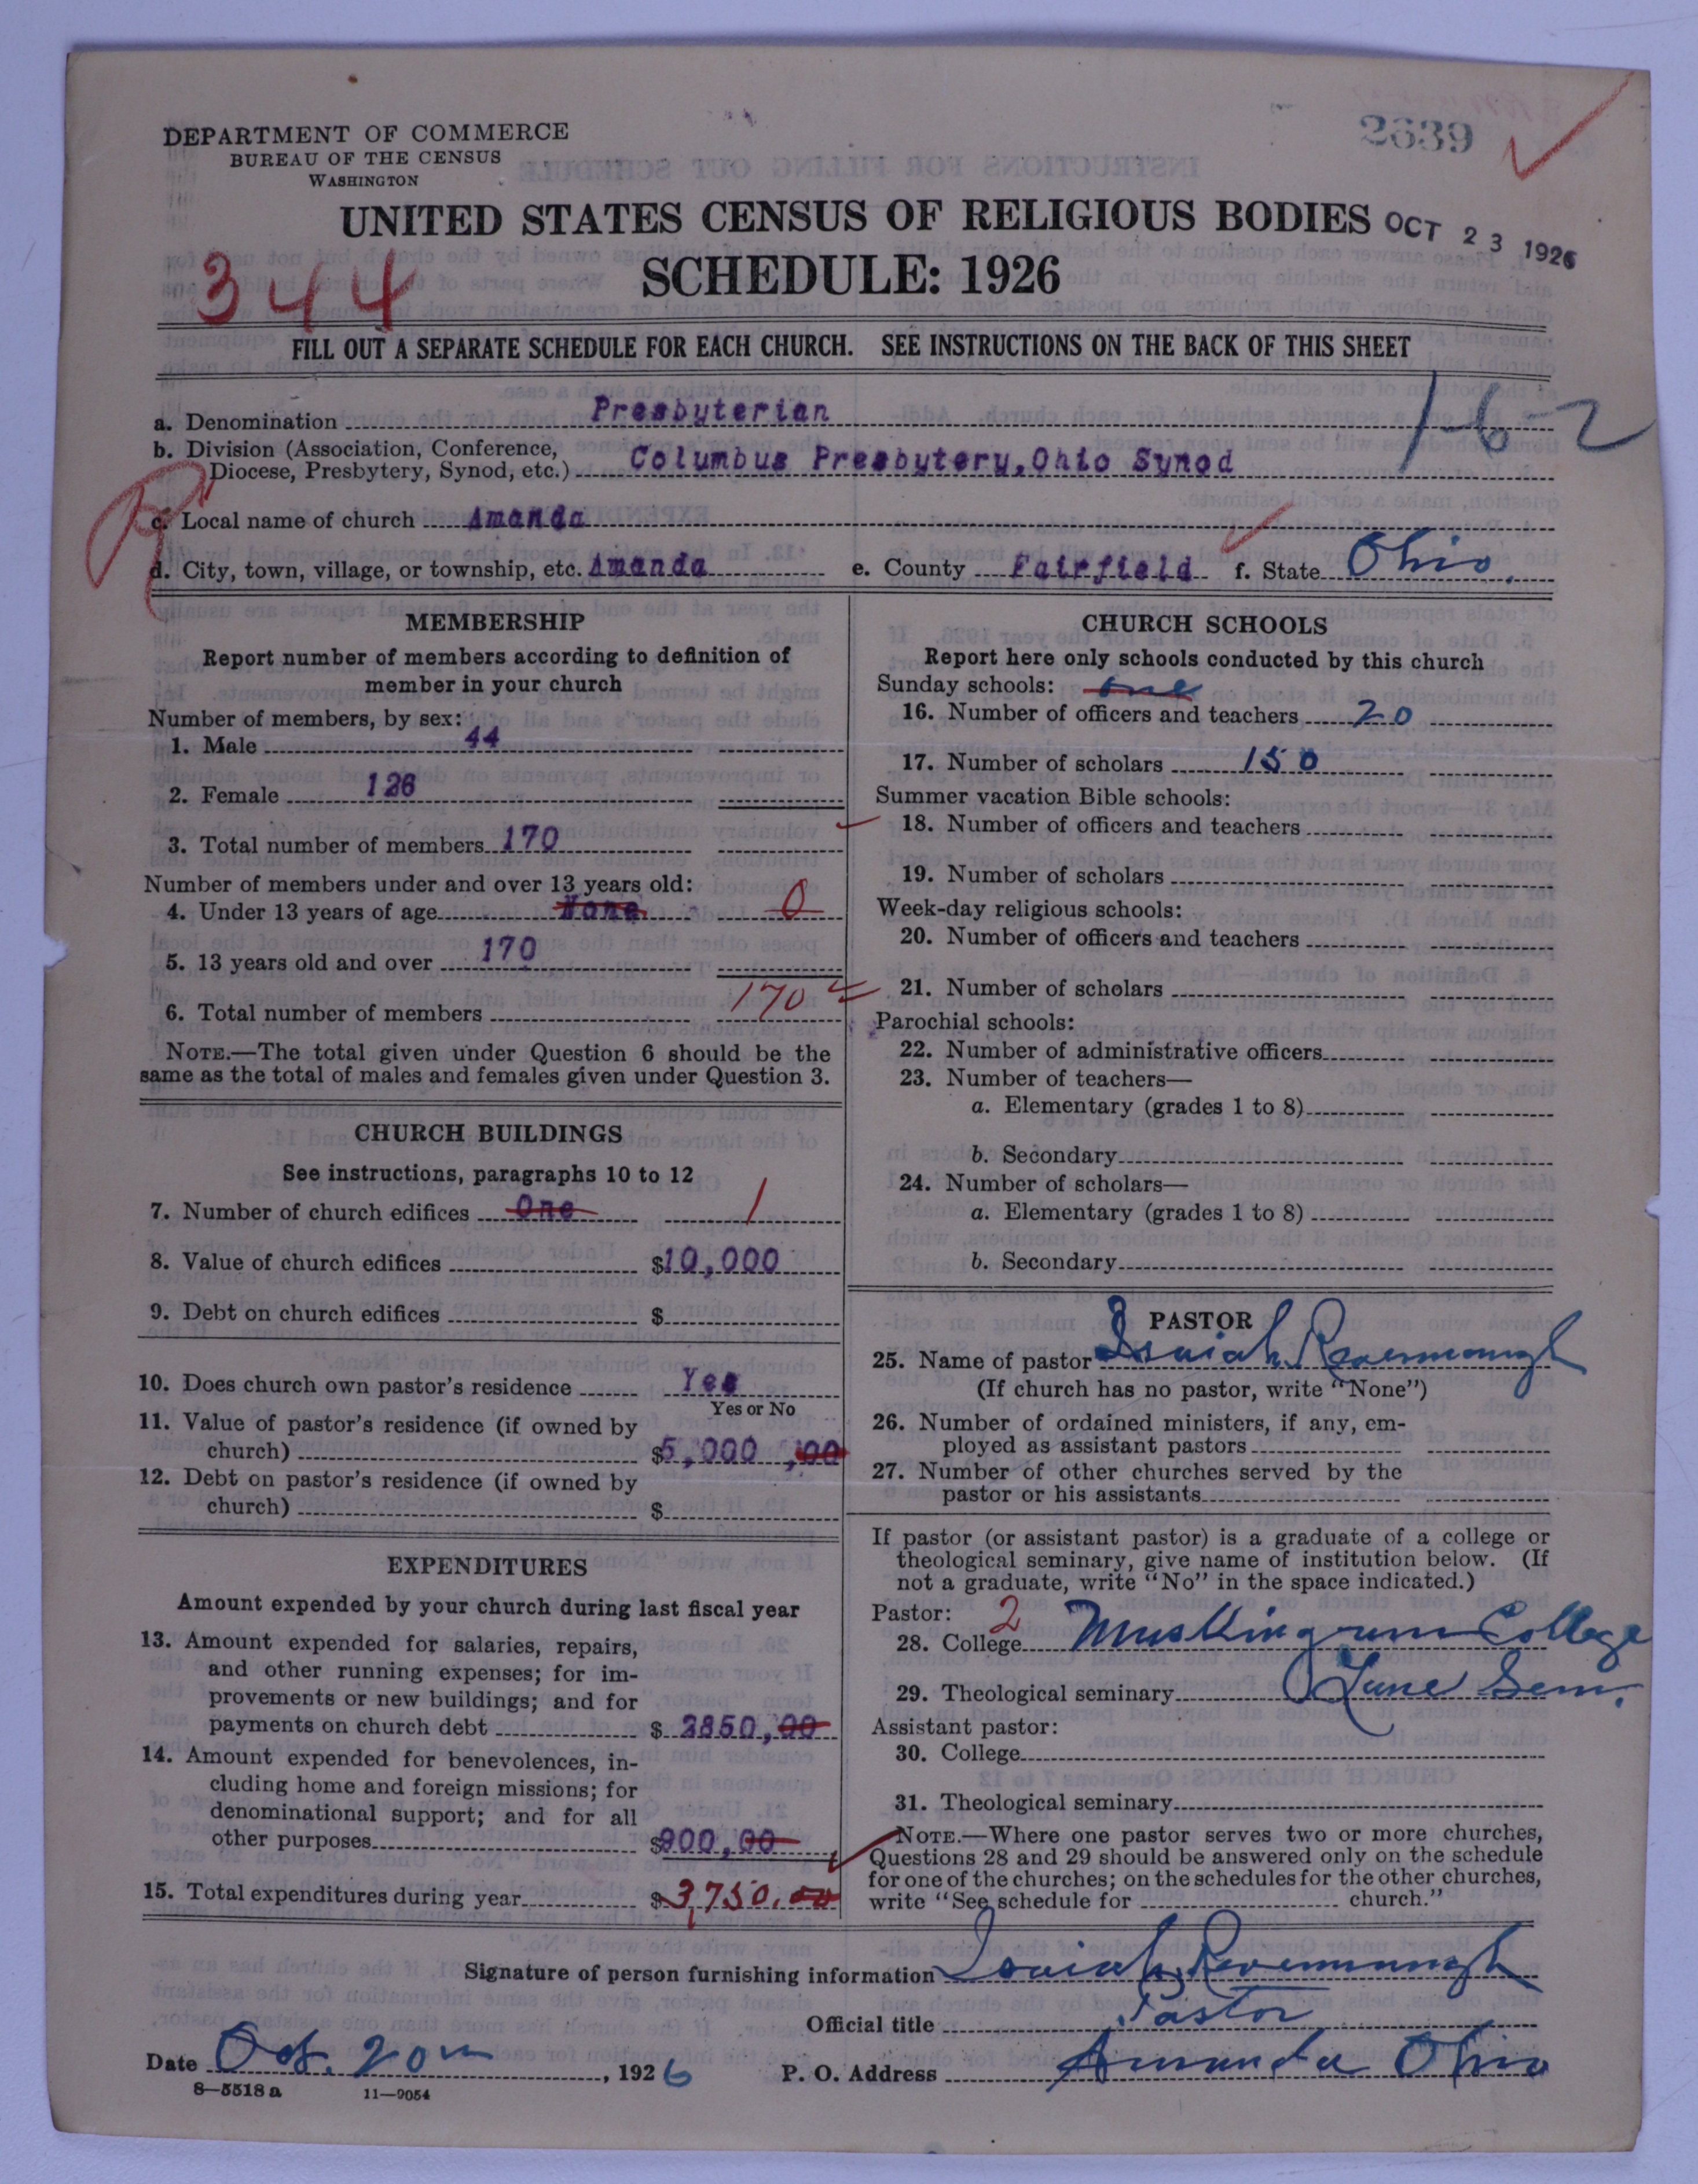 2639
DEPARTMENT OF COMMERCE
BUREAU OF THE CENSUS
WASHINGTON
UNITED STATES CENSUS OF RELIGIOUS BODIES
OCT 23 1926
344
SCHEDULE: 1926
FILL OUT A SEPARATE SCHEDULE FOR EACH CHURCH. SEE INSTRUCTIONS ON THE BACK OF THIS SHEET
1-6-2
a. Denomination Presbyterian
b. Division (Association, Conference,
Diocese, Presbytery, Synod, etc.) Columbus Presbytery, Ohio Synod
c. Local name of church Amanda
d. City, town, village, or township, etc. Amanda e. County Fairfield f. State Ohio.
MEMBERSHIP
Report number of members according to definition of
member in your church
Number of members, by sex:
1. Male 44
2. Female 126
3. Total number of members 170
Number of members under and over 13 years old:
4. Under 13 years of age None 0
5. 13 years old and over 170
6. Total number of members 170
NOTE.—The total given under Question 6 should be the
same as the total of males and females given under Question 3.
CHURCH BUILDINGS
See instructions, paragraphs 10 to 12
7. Number of church edifices One 1
8. Value of church edifices $10,000
9. Debt on church edifices $
10. Does church own pastor's residence Yes
Yes or No
11. Value of pastor's residence (if owned by
church) $5,000,00
12. Debt on pastor's residence (if owned by
church) $
EXPENDITURES
Amount expended by your church during last fiscal year
13. Amount expended for salaries, repairs,
and other running expenses; for im-
provements or new buildings; and for
payments on church debt $ 2850,00
14. Amount expended for benevolences, in-
cluding home and foreign missions; for
denominational support; and for all
other purposes $900,00
15. Total expenditures during year $3,750.00
CHURCH SCHOOLS
Report here only schools conducted by this church
Sunday schools: one
16. Number of officers and teachers 20
17. Number of scholars 150
Summer vacation Bible schools:
18. Number of officers and teachers
19. Number of scholars
Week-day religious schools:
20. Number of officers and teachers
21. Number of scholars
Parochial schools:
22. Number of administrative officers
23. Number of teachers—
a. Elementary (grades 1 to 8)
b. Secondary
24. Number of scholars—
a. Elementary (grades 1 to 8)
b. Secondary
PASTOR
25. Name of pastor Isaiah Ravenaugh
(If church has no pastor, write "None")
26. Number of ordained ministers, if any, em-
ployed as assistant pastors
27. Number of other churches served by the
pastor or his assistants
If pastor (or assistant pastor) is a graduate of a college or
theological seminary, give name of institution below. (If
not a graduate, write "No" in the space indicated.)
Pastor: 2
28. College Muskingum College
29. Theological seminary Lane Sem.
Assistant pastor:
30. College
31. Theological seminary
NOTE.—Where one pastor serves two or more churches,
Questions 28 and 29 should be answered only on the schedule
for one of the churches; on the schedules for the other churches,
write "See schedule for church."
Signature of person furnishing information Isaiah
Official title Pastor
Date Oct. 20th, 1926 P. O. Address Amanda Ohio
8—5518 a 11—9054